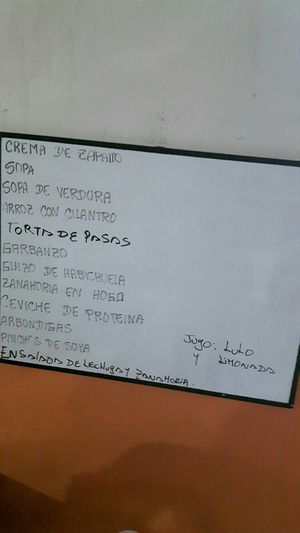 CREMA DE ZAPALLO
SOPA
SOPA DE VERDURA
ARROZ CON CILANTRO
TORTA DE PASAS
GARBANZO
GUIZO DE HABICHUELA
ZANAHORIA EN HOGO
CEVICHE DE PROTEINA
ARBONDIGAS
PINCHOS DE SOYA
ENSALADA DE LECHUGA Y ZANAHORIA.
JUGO: LULO
Y LIMONADA